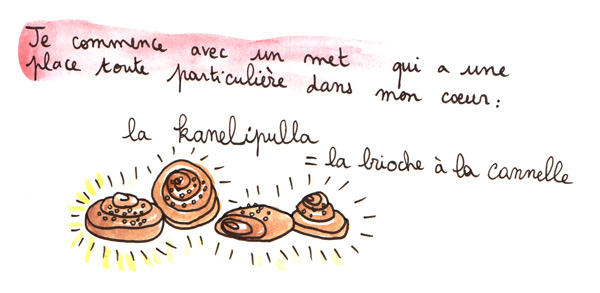 Je commence avec un met qui a une
place toute particulière dans mon coeur :
la kanelipulla
= la brioche à la cannelle